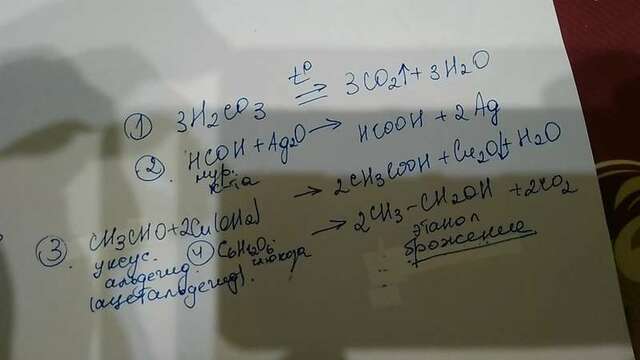 ① 3H2CO3 t° ⇒ 3CO2↑ + 3H2O
② HCOH + Ag2O → HCOOH + 2Ag
мур. к-та
③. CH3CHO + 2Cu(OH2) → 2CH3COOH + Cu2O↓ + H2O
уксус. альдегид (ацетальдегид).
④ C6H12O6 → 2CH3-CH2OH + 2CO2
глюкоза этанол
брожение